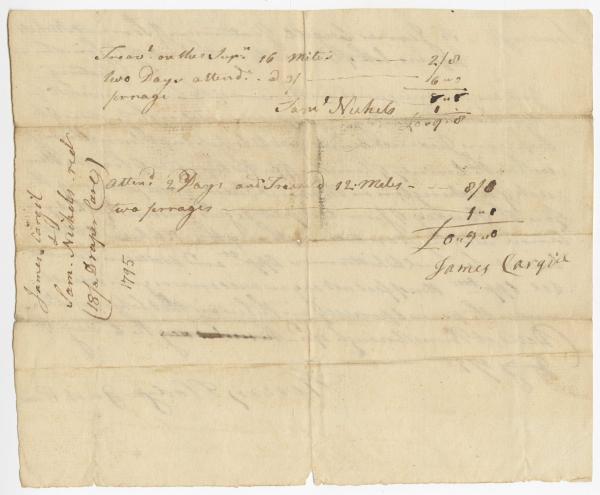 Travd. on this Supn. 16 Miles — 2/8
two Days attendc. a 3/ — 6 " 0
8 " 8
prrage 1
Saml Nickels £0 " 9 " 8
Attend 2 Days and Traveld 12 Miles — 8/8
two prrages — 1 " 0
£0 " 9 " 8
James Cargill
James Cargil
&
Sam. Nichels recd
(18/ Draper Care)
1795